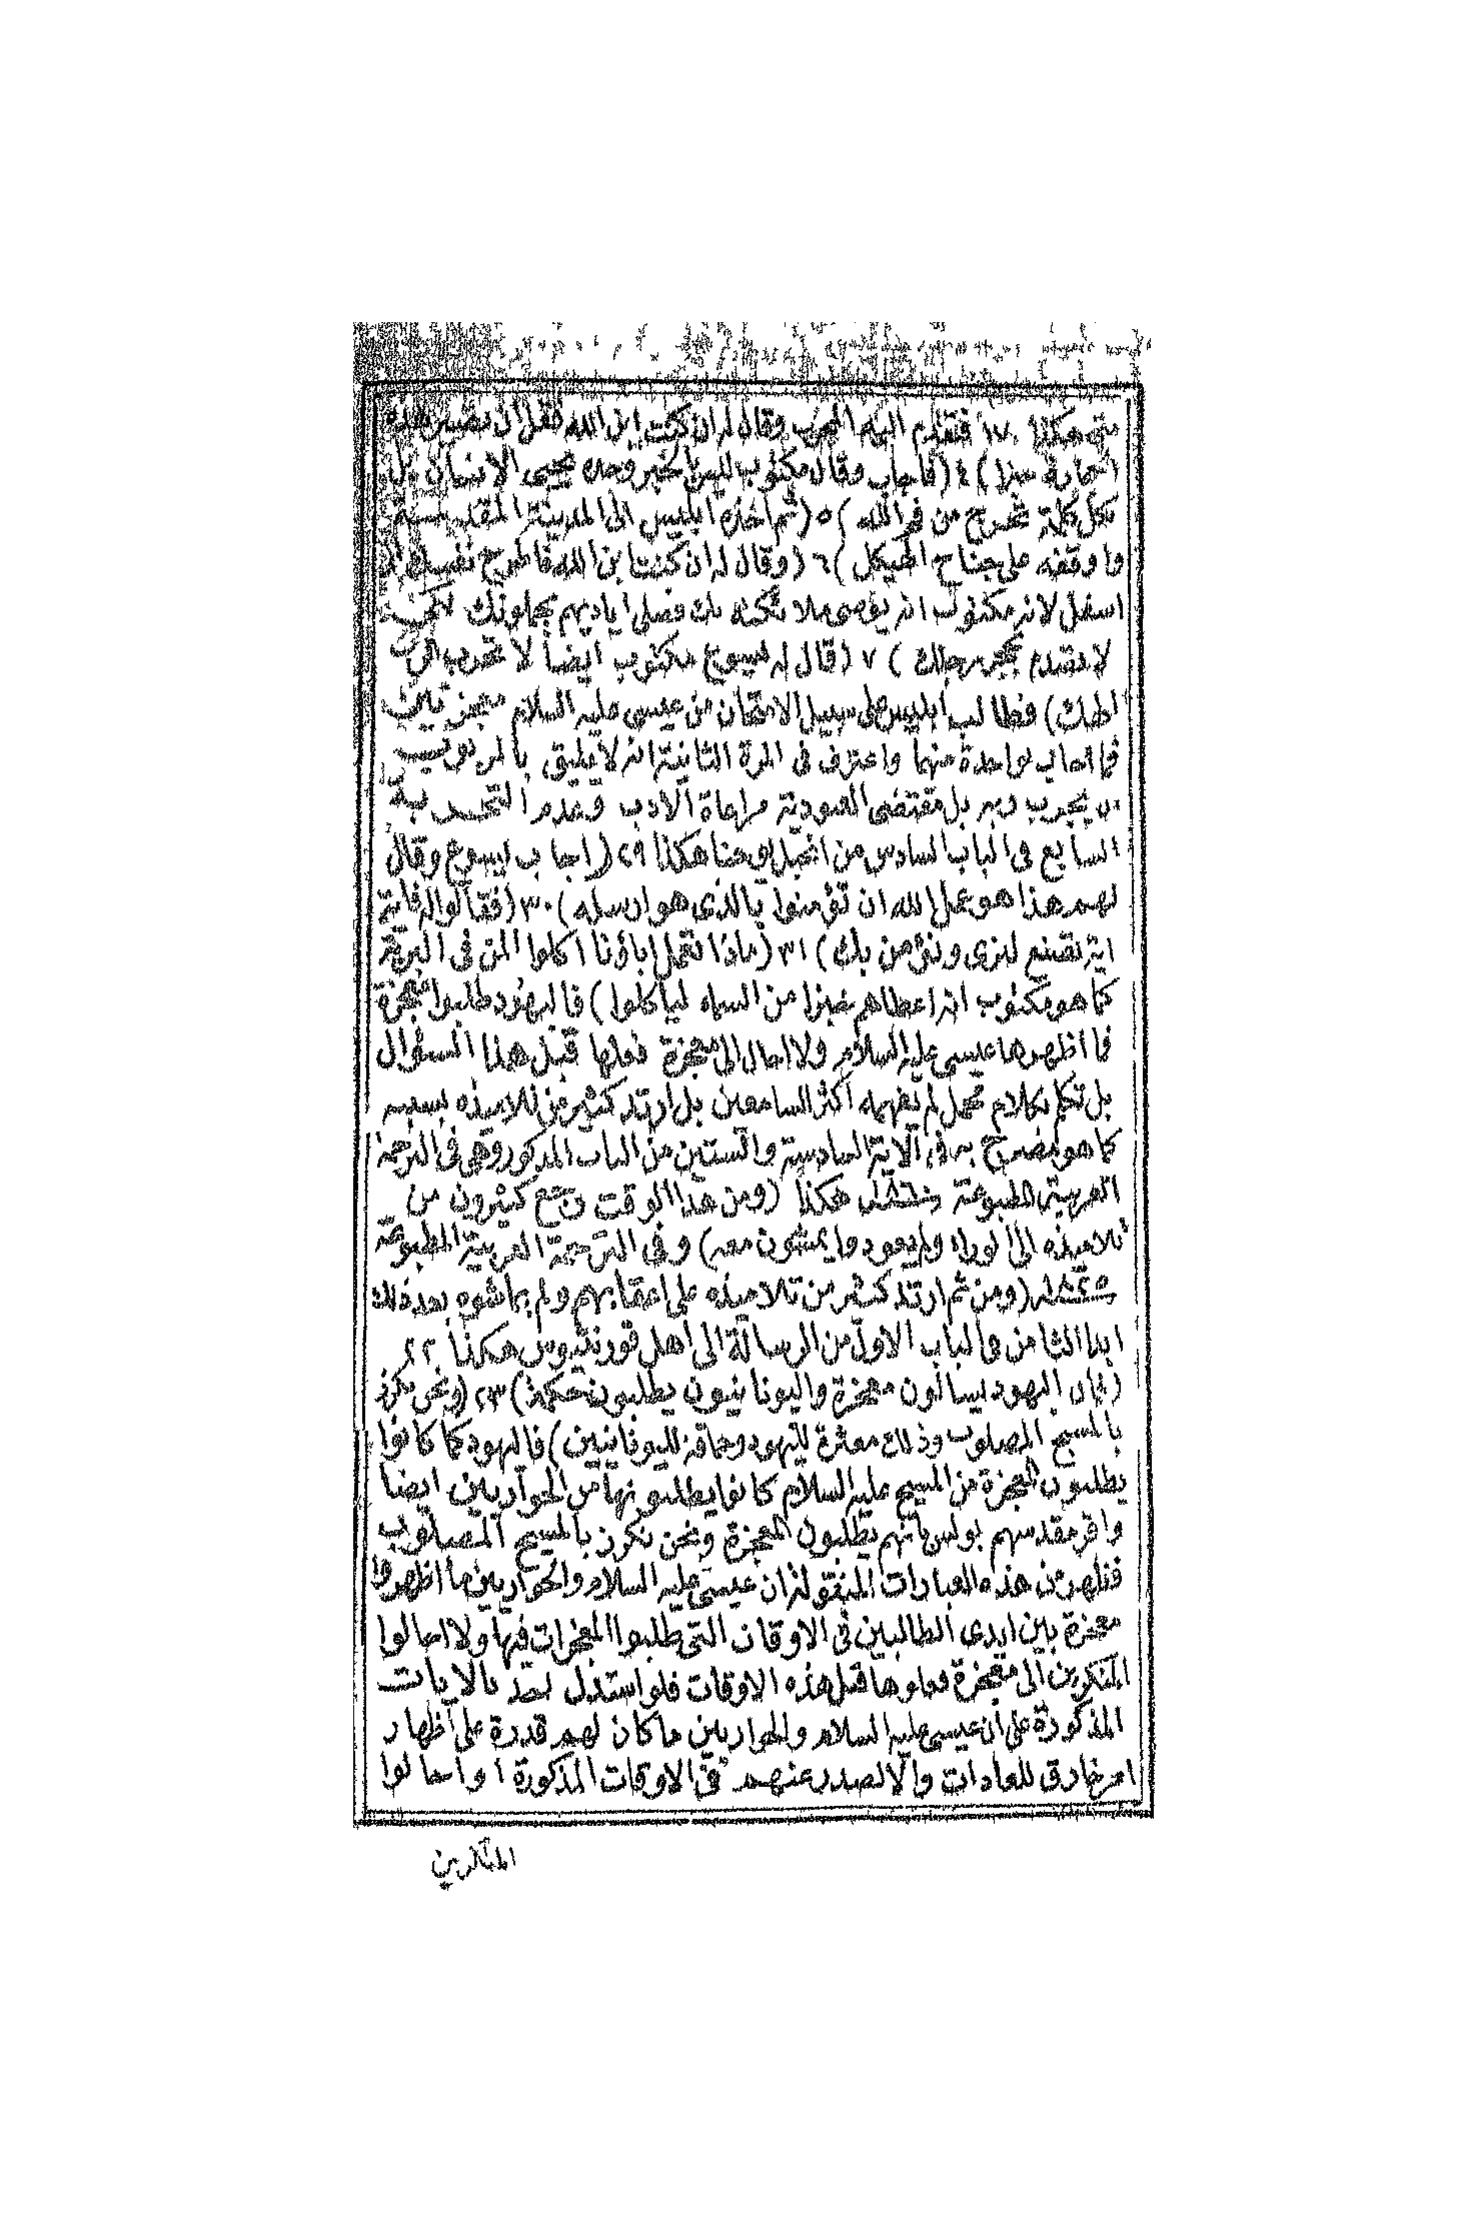 متى هكذا فتقدم اليه المجرب وقال له ان كنت ابن الله فقل ان تصير هذه
الحجارة خبزا) ٤ (فاجاب وقال مكتوب ليس بالخبز وحده يحيى الانسان بل
بكل كلمة تخرج من فم الله) ٥ (ثم اخذه ابليس الى المدينة المقدسة
واوقفه على جناح الهيكل) ٦ (وقال له ان كنت ابن الله فاطرح نفسك الى
اسفل لانه مكتوب انه يوصى ملائكته بك فعلى اياديهم يحملونك لكى
لا تصدم بحجر رجلك) ٧ (قال له يسوع مكتوب ايضا لا تجرب الرب
الهك) فطالب ابليس على سبيل الامتحان من عيسى عليه السلام معجزتين
فما اجاب بواحدة منهما واعترف فى المرة الثانية انه لا يليق بالمربوب
ان يجرب ربه بل مقتضى العبودية مراعاة الادب وعدم التجربة
السابع فى الباب السادس من انجيل يوحنا هكذا ٢٩ (اجاب يسوع وقال
لهم هذا هو عمل الله ان تؤمنوا بالذى هو ارسله) ٣٠ (فقالوا له فاية
اية تصنع لنرى ونؤمن بك) ٣١ (ماذا تعمل اباؤنا اكلوا المن فى البرية
كما هو مكتوب انه اعطاهم خبزا من السماء لياكلوا) فاليهود طلبوا معجزة
فما اظهرها عيسى عليه السلام ولا احال الى معجزة فعلها قبل هذا السؤال
بل تكلم بكلام مجمل لم يفهمه اكثر السامعين بل ارتد كثير من تلاميذه بسببه
كما هو مصرح به فى الاية السادسة والستين من الباب المذكور وهى فى الترجمة
العربية المطبوعة هكذا (ومن هذا الوقت رجع كثيرون من
تلاميذه الى الوراء ولم يعودوا يمشون معه) وفى الترجمة العربية المطبوعة
(ومن ثم ارتد كثير من تلاميذه على اعقابهم ولم يماشوه بعد ذلك
ابدا الثامن فى الباب الاول من الرسالة الى اهل قورنثيوس هكذا ٢٢
(فان اليهود يسالون معجزة واليونانيون يطلبون حكمة) ٢٣ (ونحن نكرز
بالمسيح المصلوب وذلك معثرة لليهود وحماقة لليونانيين) فاليهود كما كانوا
يطلبون المعجزة من المسيح عليه السلام كانوا يطلبونها من الحواريين ايضا
واقر مقدسهم بولس بانهم يطلبون المعجزة ونحن نكرز بالمسيح المصلوب
فظهر من هذه العبارات المنقولة ان عيسى عليه السلام والحواريين ما اظهروا
معجزة بين ايدى الطالبين فى الاوقات التى طلبوا المعجزات فيها ولا احالوا
المنكرين الى معجزة فعلوها قبل هذه الاوقات فلو استدل احد بالايات
المذكورة على ان عيسى عليه السلام والحواريين ما كان لهم قدرة على اظهار
امر خارق للعادات والا لصدر عنهم فى الاوقات المذكورة او احالوا
المنكرين